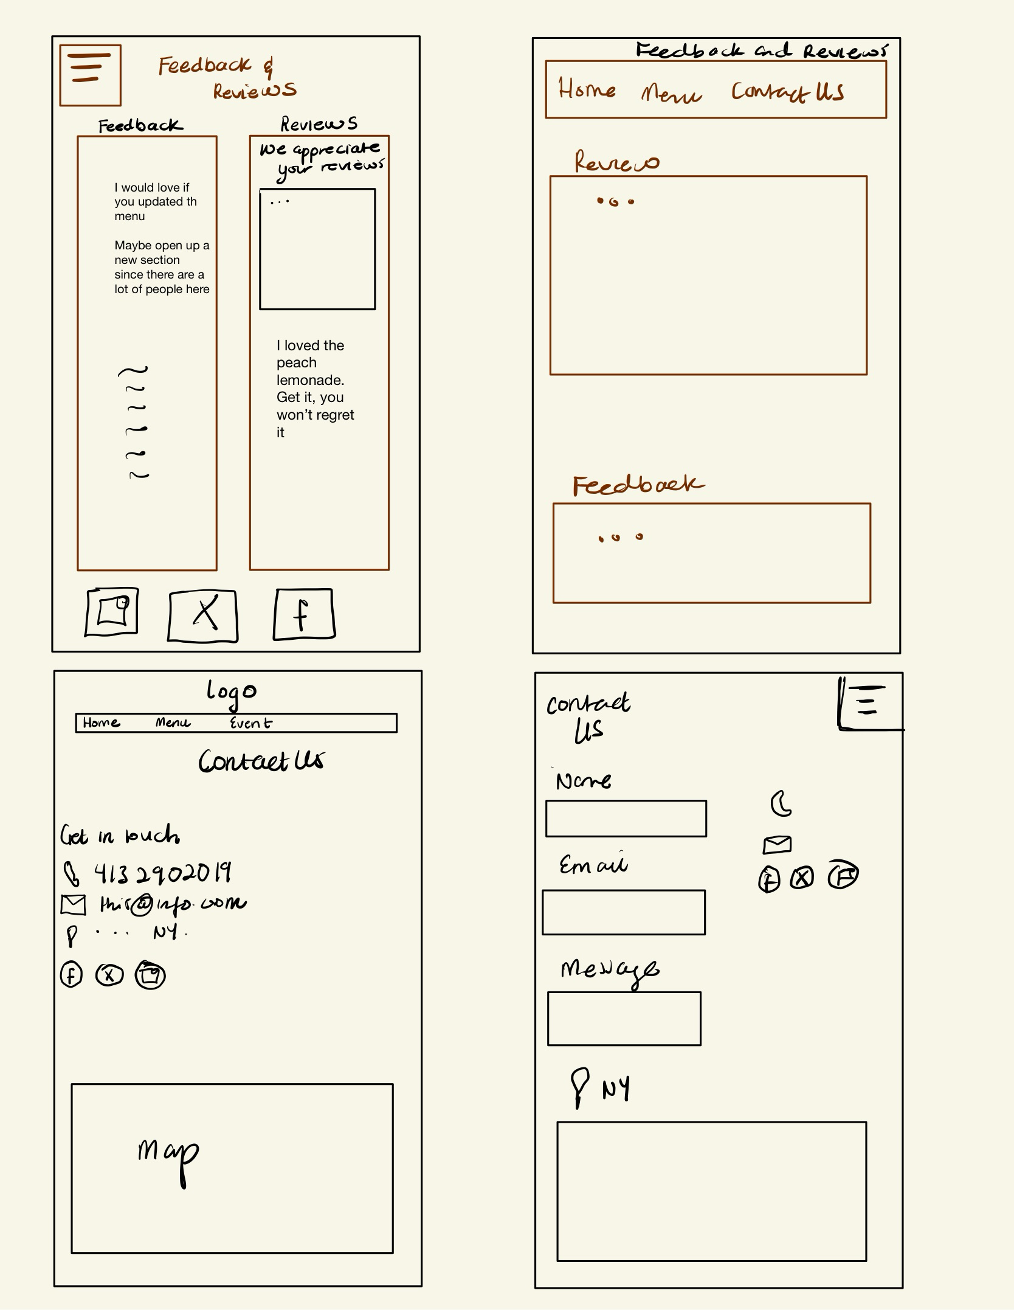 Feedback &
Reviews
Feedback
I would love if
you updated th
menu
Maybe open up a
new section
since there are a
lot of people here
Reviews
We appreciate
your reviews
...
I loved the
peach
lemonade.
Get it, you
won't regret
it
X
f
Feedback and Reviews
Home Menu Contact Us
Review
...
Feedback
...
Logo
Home Menu Event
Contact Us
Get in touch
413 2902019
this@info.com
... NY.
f X
Map
Contact
Us
Name
Email
f X
Message
NY